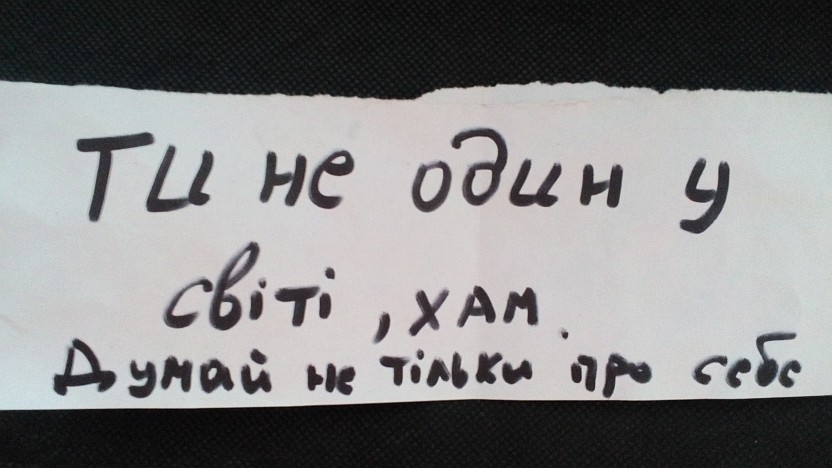 Ти не один у
світі, хам.
Думай не тільки про себе